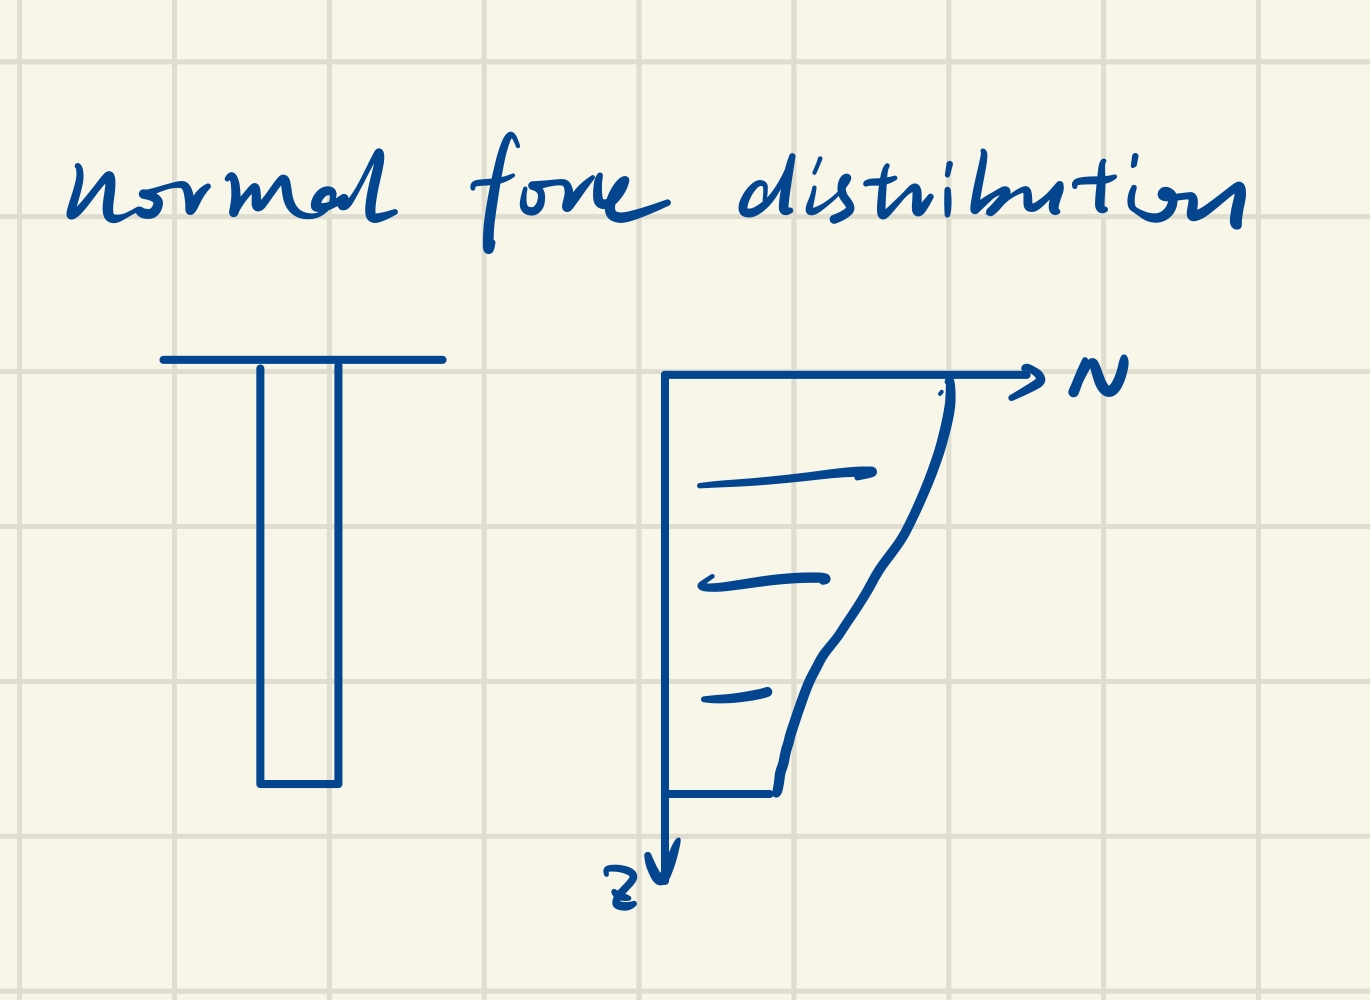 normal force distribution
N
z